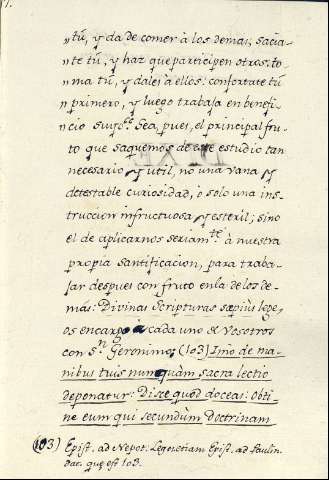 „tú, y da de comer à los demas, sacia-
„te tú, y haz que participen otros: to
„ma tú, y dales à ellos: confortate tú
„primero, y luego trabaja en benefi-
„cio suyo. Sea, pues, el principal fru-
to que saquemos de este estudio tan
necesario y util, no una vana y
detestable curiosidad, o solo una ins-
truccion infructuosa y esteril; sino
el de aplicarnos seriam.te à nuestra
propia santificacion, para traba-
jar despues con fruto en la de los de-
más: Divinas Scripturas sæpius lege,
os encargo à cada uno de vosotros
con S.n Geronimo, (103) Imò de ma-
nibus tuis nunquàm sacra lectio
deponatur: Disce quod doceas: obti-
ne eum qui secundùm doctrinam
(103) Epist. ad Nepot. Lege etiam Epist. ad Paulin.
quæ est 103.